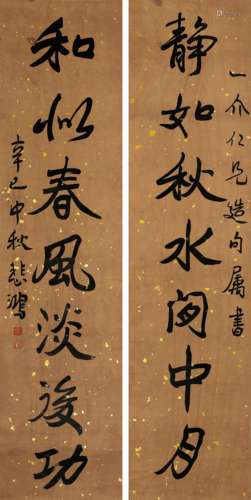 一介仁兄造句属書
静如秋水中月
和似春風淡後功
辛巳中秋悲鴻